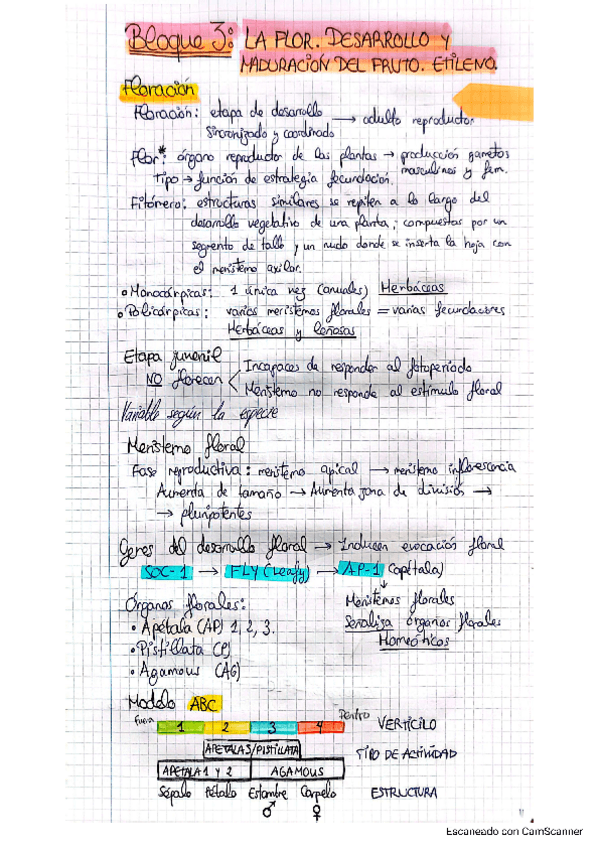 Bloque 3: LA FLOR. DESARROLLO Y
MADURACIÓN DEL FRUTO. ETILENO.
Floración
Floración: etapa de desarrollo → adulto reproductor
Sincronizado y coordinado
Flor*: órgano reproductor de las plantas → producción gametos
masculinos y fem.
Tipo → función de estrategia fecundación.
Fitómero: estructuras similares se repiten a lo largo del
desarrollo vegetativo de una planta; compuestas por un
segmento de tallo y un nudo donde se inserta la hoja con
el meristemo axilar.
• Monocárpicas: 1 única vez (anuales) Herbáceas
• Policárpicas: varios meristemos florales = varias fecundaciones
Herbáceas y leñosas
Etapa juvenil
NO florecen
Incapaces de responder al fotoperíodo
Meristemo no responde al estímulo floral
Variable según la especie
Meristemo floral
Fase reproductiva: meristemo apical → meristemo inflorescencia
Aumenta de tamaño → Aumenta zona de división →
→ pluripotentes
Genes del desarrollo floral → Inducen evocación floral
SOC-1 → FLY (Leafy) → AP-1 (apétala)
↓
Meristemos florales
Señaliza órganos florales
Homeóticos
Órganos florales:
• Apétala (AP) 1, 2, 3.
• Pistillata (PI)
• Agamous (AG)
Modelo ABC
Fuera 1 2 3 4 Dentro VERTICILO
APETALA3/PISTILLATA TIPO DE ACTIVIDAD
APETALA 1 Y 2 AGAMOUS
Sépalo Pétalo Estambre Carpelo ESTRUCTURA
♂ ♀
Escaneado con CamScanner